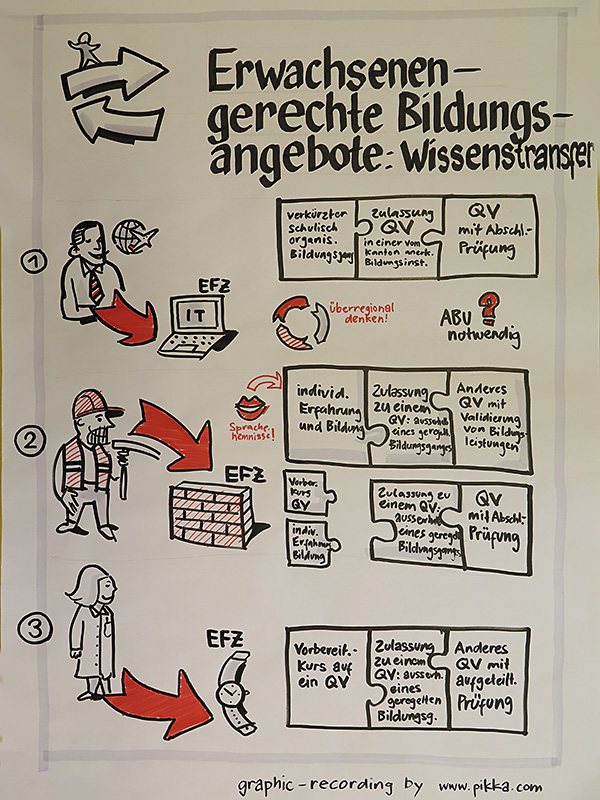 Erwachsenen-
gerechte Bildungs-
angebote: Wissenstransfer
1
EFZ
IT
verkürzter
schulisch
organis.
Bildungsgang
Zulassung
QV
in einer vom
Kanton anerk.
Bildungsinst.
QV
mit Abschl.-
Prüfung
überregional
denken!
ABU ?
notwendig
2
EFZ
Sprache.
hemnisse!
individ.
Erfahrung
und Bildung
Zulassung
zu einem
QV: ausserhalb
eines geregelt.
Bildungsganges
Anderes
QV mit
Validierung
von Bildungs-
leistungen
Vorber.
kurs
QV
indiv.
Erfahrung
Bildung
Zulassung zu
einem QV:
ausserhalb
eines geregelt.
Bildungsgangs
QV
mit Abschl-
Prüfung
3
EFZ
Vorbereit.-
Kurs auf
ein QV
Zulassung
zu einem
QV: ausserh.
eines
geregelten
Bildungsg.
Anderes
QV mit
aufgeteilt.
Prüfung
graphic-recording by www.pikka.com